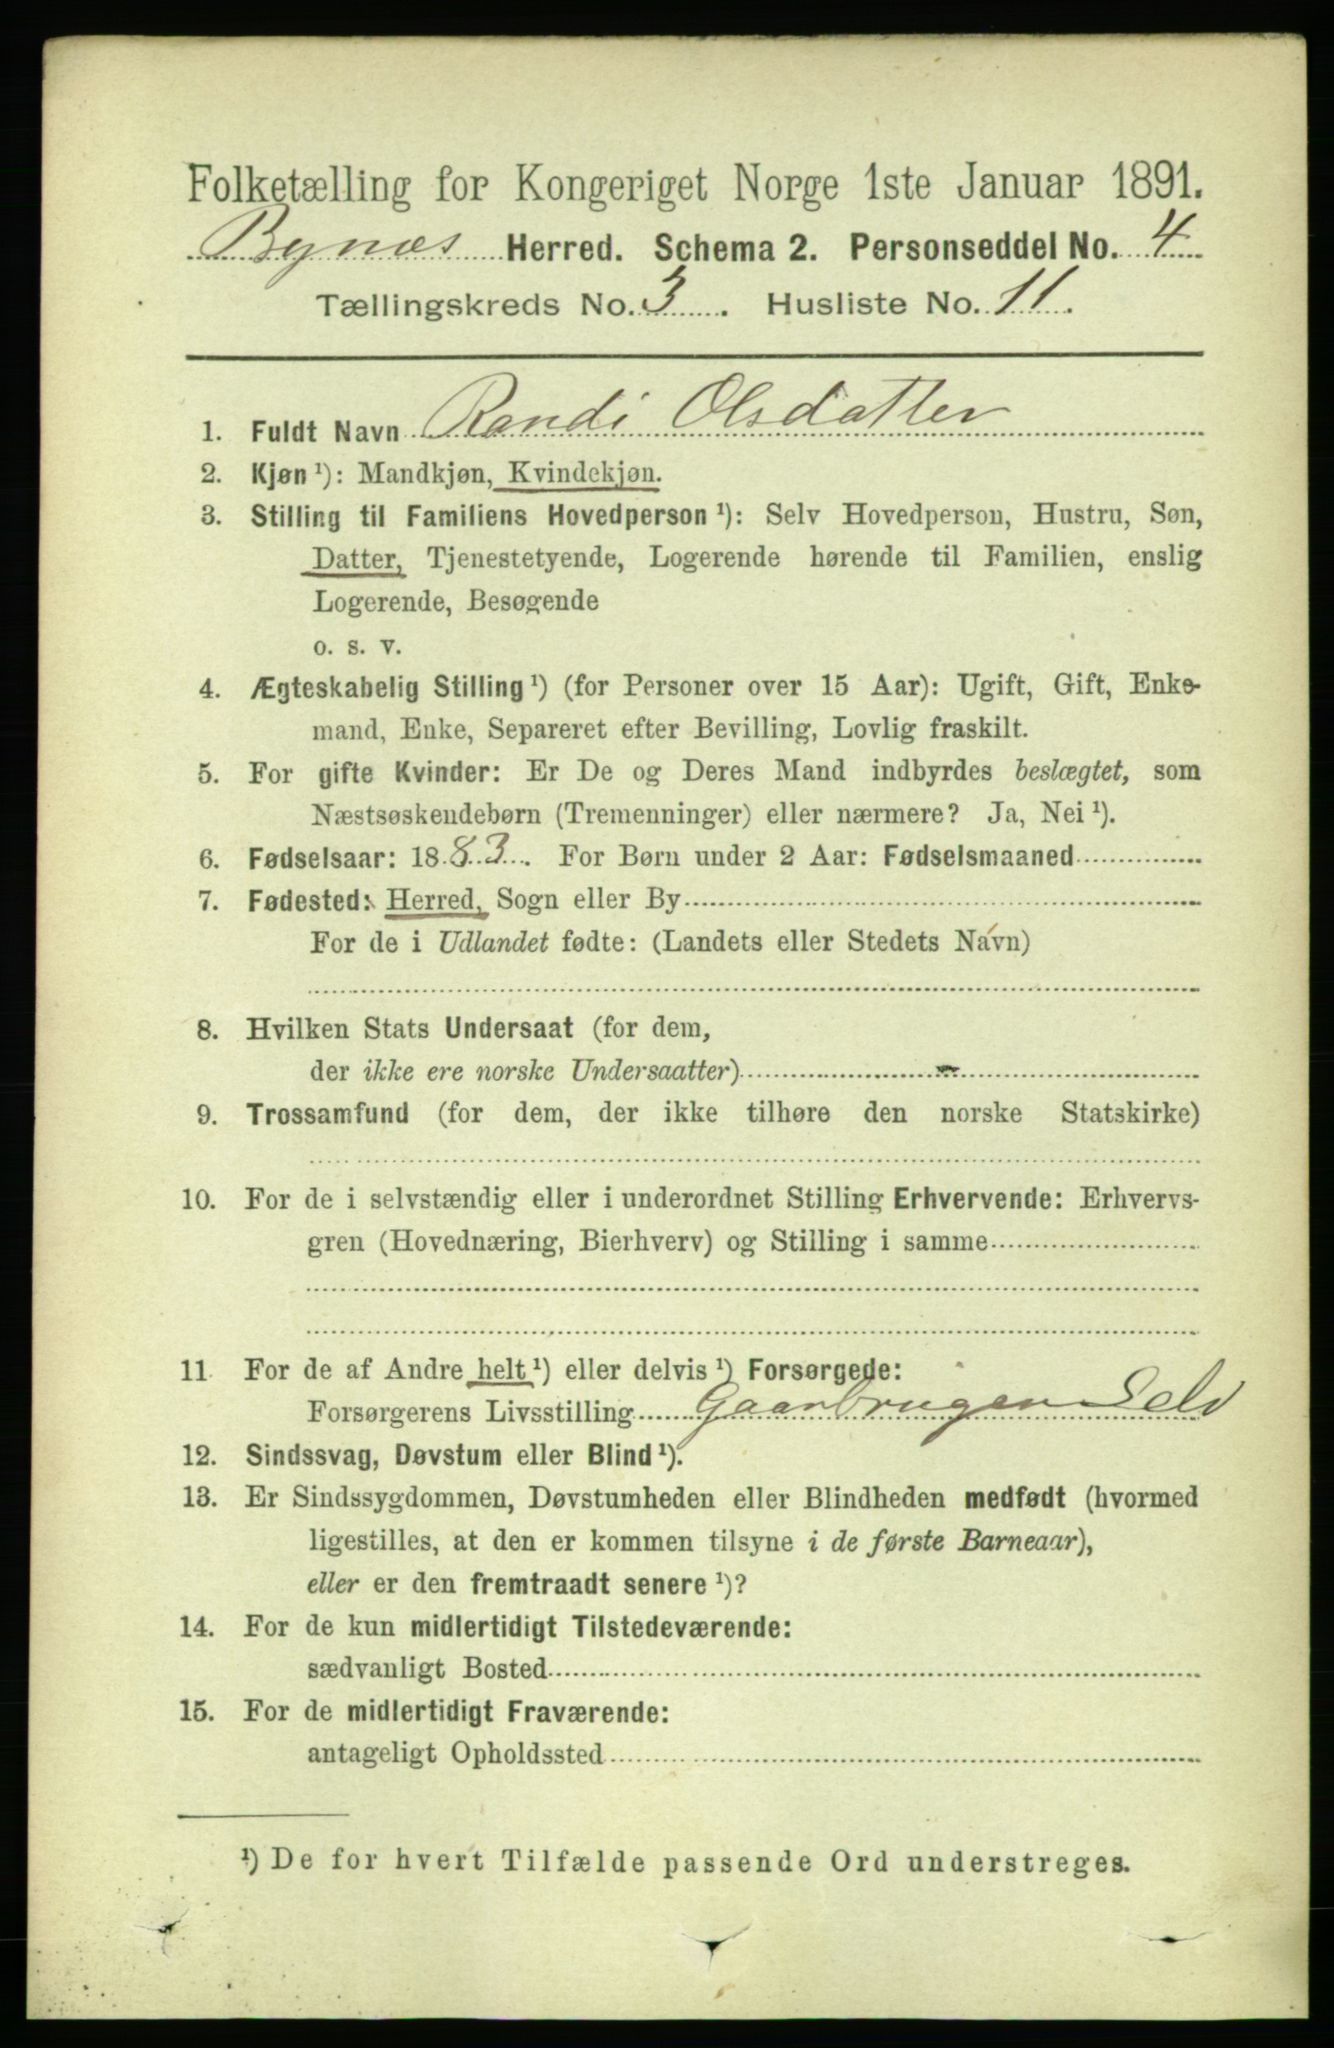 Folketælling for Kongeriget Norge 1ste Januar 1891.
Bynæs Herred. Schema 2. Personseddel No. 4
Tællingskreds No. 3. Husliste No. 11.
1. Fuldt Navn Randi Olsdatter
2. Kjøn ¹): Mandkjøn, Kvindekjøn.
3. Stilling til Familiens Hovedperson ¹): Selv Hovedperson, Hustru, Søn,
Datter, Tjenestetyende, Logerende hørende til Familien, enslig
Logerende, Besøgende
o. s. v.
4. Ægteskabelig Stilling ¹) (for Personer over 15 Aar): Ugift, Gift, Enke-
mand, Enke, Separeret efter Bevilling, Lovlig fraskilt.
5. For gifte Kvinder: Er De og Deres Mand indbyrdes beslægtet, som
Næstsøskendebørn (Tremenninger) eller nærmere? Ja, Nei ¹).
6. Fødselsaar: 1883. For Børn under 2 Aar: Fødselsmaaned
7. Fødested: Herred, Sogn eller By
For de i Udlandet fødte: (Landets eller Stedets Navn)
8. Hvilken Stats Undersaat (for dem,
der ikke ere norske Undersaatter)
9. Trossamfund (for dem, der ikke tilhøre den norske Statskirke)
10. For de i selvstændig eller i underordnet Stilling Erhvervende: Erhvervs-
gren (Hovednæring, Bierhverv) og Stilling i samme
11. For de af Andre helt ¹) eller delvis ¹) Forsørgede:
Forsørgerens Livsstilling Gaarbruger Selv
12. Sindssvag, Døvstum eller Blind ¹).
13. Er Sindssygdommen, Døvstumheden eller Blindheden medfødt (hvormed
ligestilles, at den er kommen tilsyne i de første Barneaar),
eller er den fremtraadt senere ¹)?
14. For de kun midlertidigt Tilstedeværende:
sædvanligt Bosted
15. For de midlertidigt Fraværende:
antageligt Opholdssted
¹) De for hvert Tilfælde passende Ord understreges.